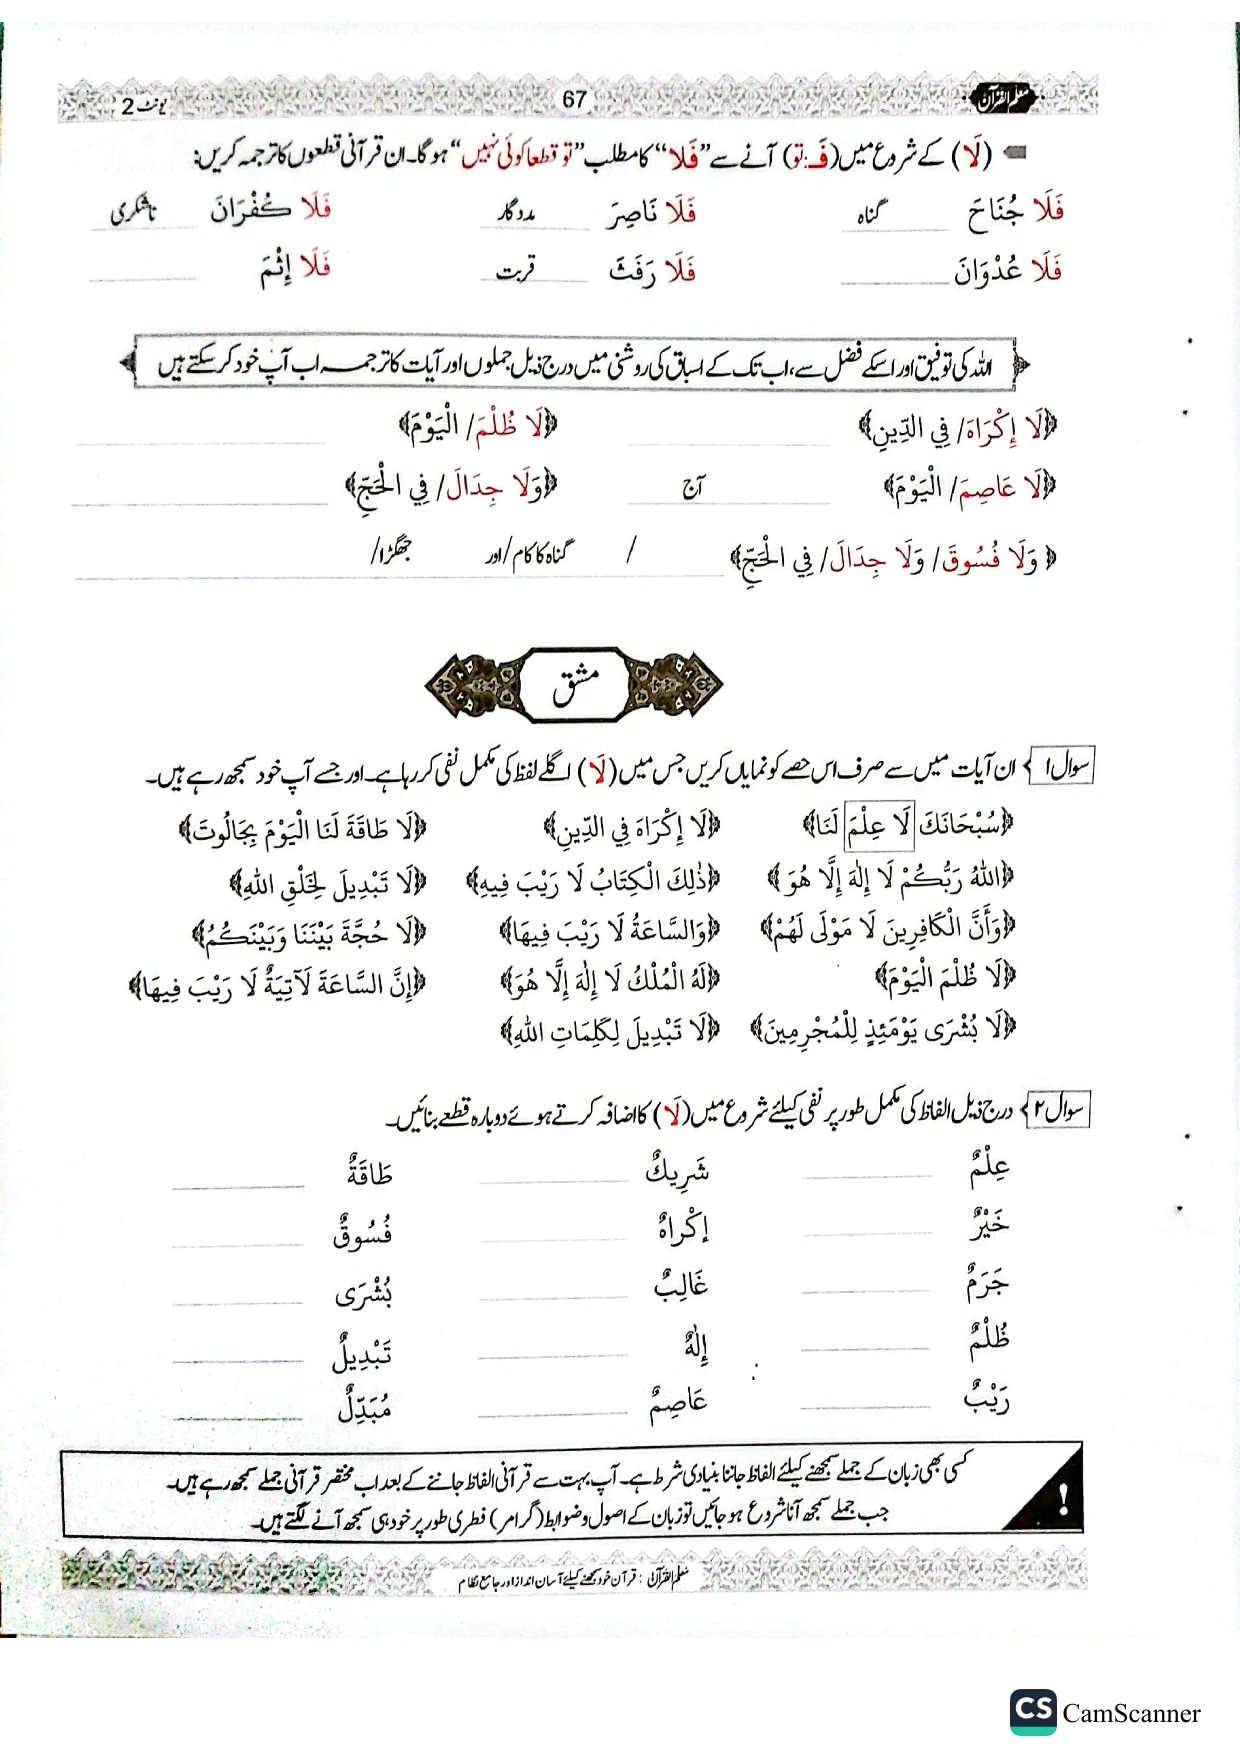 معلم القرآن 67 یونٹ 2
(لَا) کے شروع میں (فَـ: تو) آنے سے ”فَلَا“ کا مطلب ”تو قطعا کوئی نہیں“ ہوگا۔ ان قرآنی قطعوں کا ترجمہ کریں:
فَلَا جُنَاحَ گناہ فَلَا نَاصِرَ مددگار فَلَا كُفْرَانَ ناشکری
فَلَا عُدْوَانَ فَلَا رَفَثَ قربت فَلَا إِثْمَ
اللہ کی توفیق اور اسکے فضل سے، اب تک کے اسباق کی روشنی میں درج ذیل جملوں اور آیات کا ترجمہ اب آپ خود کر سکتے ہیں
﴿لَا إِكْرَاهَ/ فِي الدِّينِ﴾ ﴿لَا ظُلْمَ/ الْيَوْمَ﴾
﴿لَا عَاصِمَ/ الْيَوْمَ﴾ آج ﴿وَلَا جِدَالَ/ فِي الْحَجِّ﴾
﴿وَلَا فُسُوقَ/ وَلَا جِدَالَ/ فِي الْحَجِّ﴾ / گناہ کا کام/ اور جھگڑا/
مشق
سوال ۱ ان آیات میں سے صرف اس حصے کو نمایاں کریں جس میں (لَا) اگلے لفظ کی مکمل نفی کر رہا ہے۔ اور جسے آپ خود سمجھ رہے ہیں۔
﴿سُبْحَانَكَ لَا عِلْمَ لَنَا﴾ ﴿لَا إِكْرَاهَ فِي الدِّينِ﴾ ﴿لَا طَاقَةَ لَنَا الْيَوْمَ بِجَالُوتَ﴾
﴿اللهُ رَبُّكُمْ لَا إِلٰهَ إِلَّا هُوَ﴾ ﴿ذٰلِكَ الْكِتَابُ لَا رَيْبَ فِيهِ﴾ ﴿لَا تَبْدِيلَ لِخَلْقِ اللهِ﴾
﴿وَأَنَّ الْكَافِرِينَ لَا مَوْلَى لَهُمْ﴾ ﴿وَالسَّاعَةُ لَا رَيْبَ فِيهَا﴾ ﴿لَا حُجَّةَ بَيْنَنَا وَبَيْنَكُمُ﴾
﴿لَا ظُلْمَ الْيَوْمَ﴾ ﴿لَهُ الْمُلْكُ لَا إِلٰهَ إِلَّا هُوَ﴾ ﴿إِنَّ السَّاعَةَ لَآتِيَةٌ لَا رَيْبَ فِيهَا﴾
﴿لَا بُشْرَى يَوْمَئِذٍ لِلْمُجْرِمِينَ﴾ ﴿لَا تَبْدِيلَ لِكَلِمَاتِ اللهِ﴾
سوال ۲ درج ذیل الفاظ کی مکمل طور پر نفی کیلئے شروع میں (لَا) کا اضافہ کرتے ہوئے دوبارہ قطعے بنائیں۔
عِلْمٌ شَرِيكٌ طَاقَةٌ
خَيْرٌ إِكْرَاهٌ فُسُوقٌ
جَرَمٌ غَالِبٌ بُشْرَى
ظُلْمٌ إِلٰهٌ تَبْدِيلٌ
رَيْبٌ عَاصِمٌ مُبَدِّلٌ
کسی بھی زبان کے جملے سمجھنے کیلئے الفاظ جاننا بنیادی شرط ہے۔ آپ بہت سے قرآنی الفاظ جاننے کے بعد اب مختصر قرآنی جملے سمجھ رہے ہیں۔
جب جملے سمجھ آنا شروع ہو جائیں تو زبان کے اصول و ضوابط (گرامر) فطری طور پر خود ہی سمجھ آنے لگتے ہیں۔
!
معلم القرآن : قرآن خود سمجھنے کیلئے آسان انداز اور جامع نظام
CS CamScanner